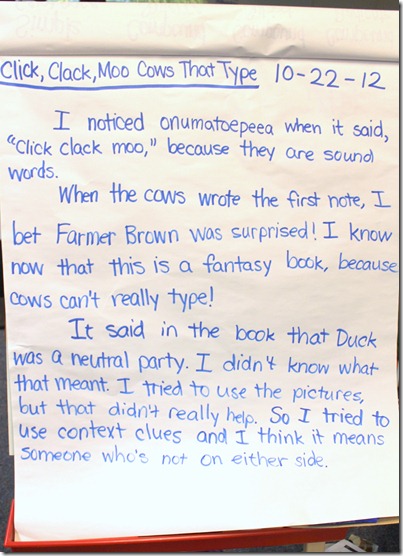 Click, Clack, Moo Cows That Type 10-22-12
I noticed onumatoepeea when it said,
"Click clack moo," because they are sound
words.
When the cows wrote the first note, I
bet Farmer Brown was surprised! I know
now that this is a fantasy book, because
cows can't really type!
It said in the book that Duck
was a neutral party. I didn't know what
that meant. I tried to use the pictures,
but that didn't really help. So I tried to
use context clues and I think it means
someone who's not on either side.